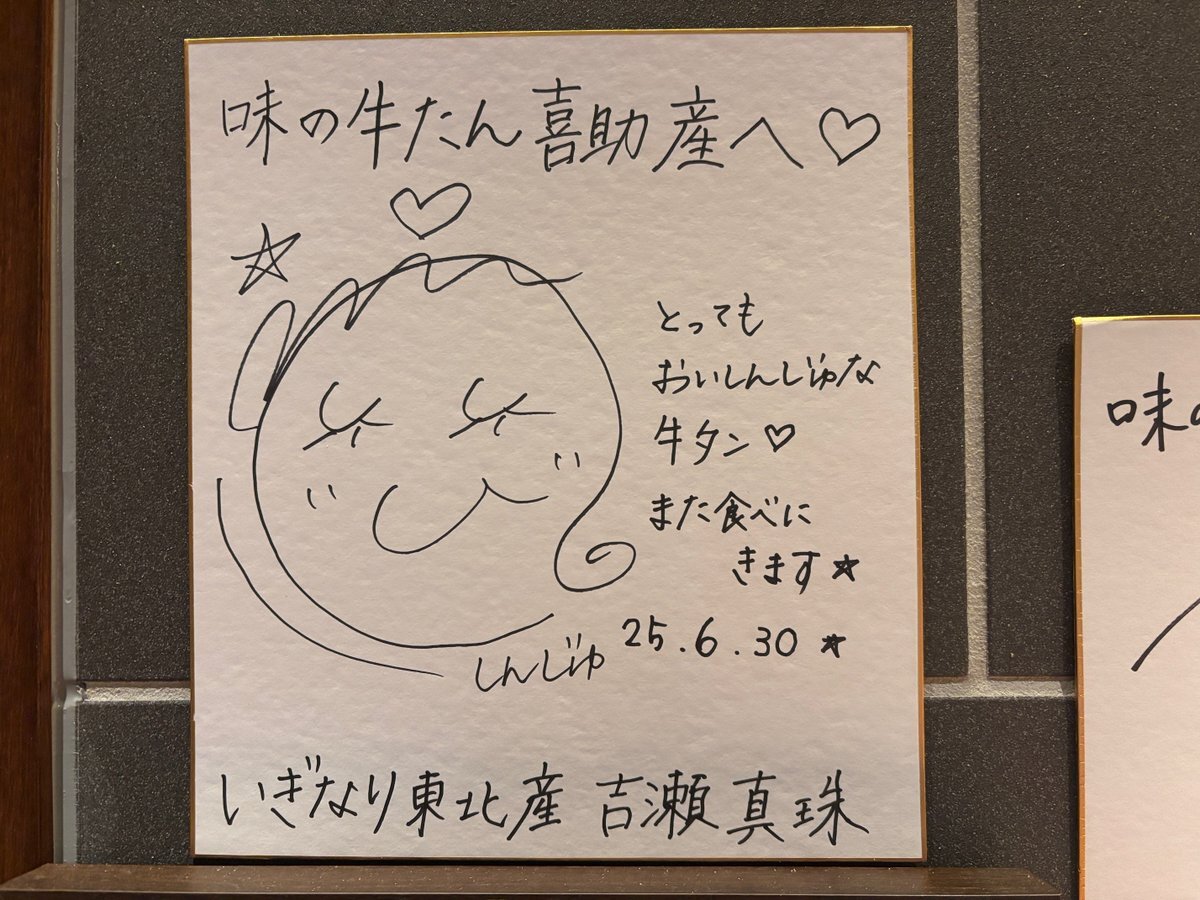 味の牛たん喜助産へ♡
とっても
おいしんじゅな
牛タン♡
また食べに
きます☆
25.6.30☆
しんじゅ
いぎなり東北産 吉瀬真珠
味の